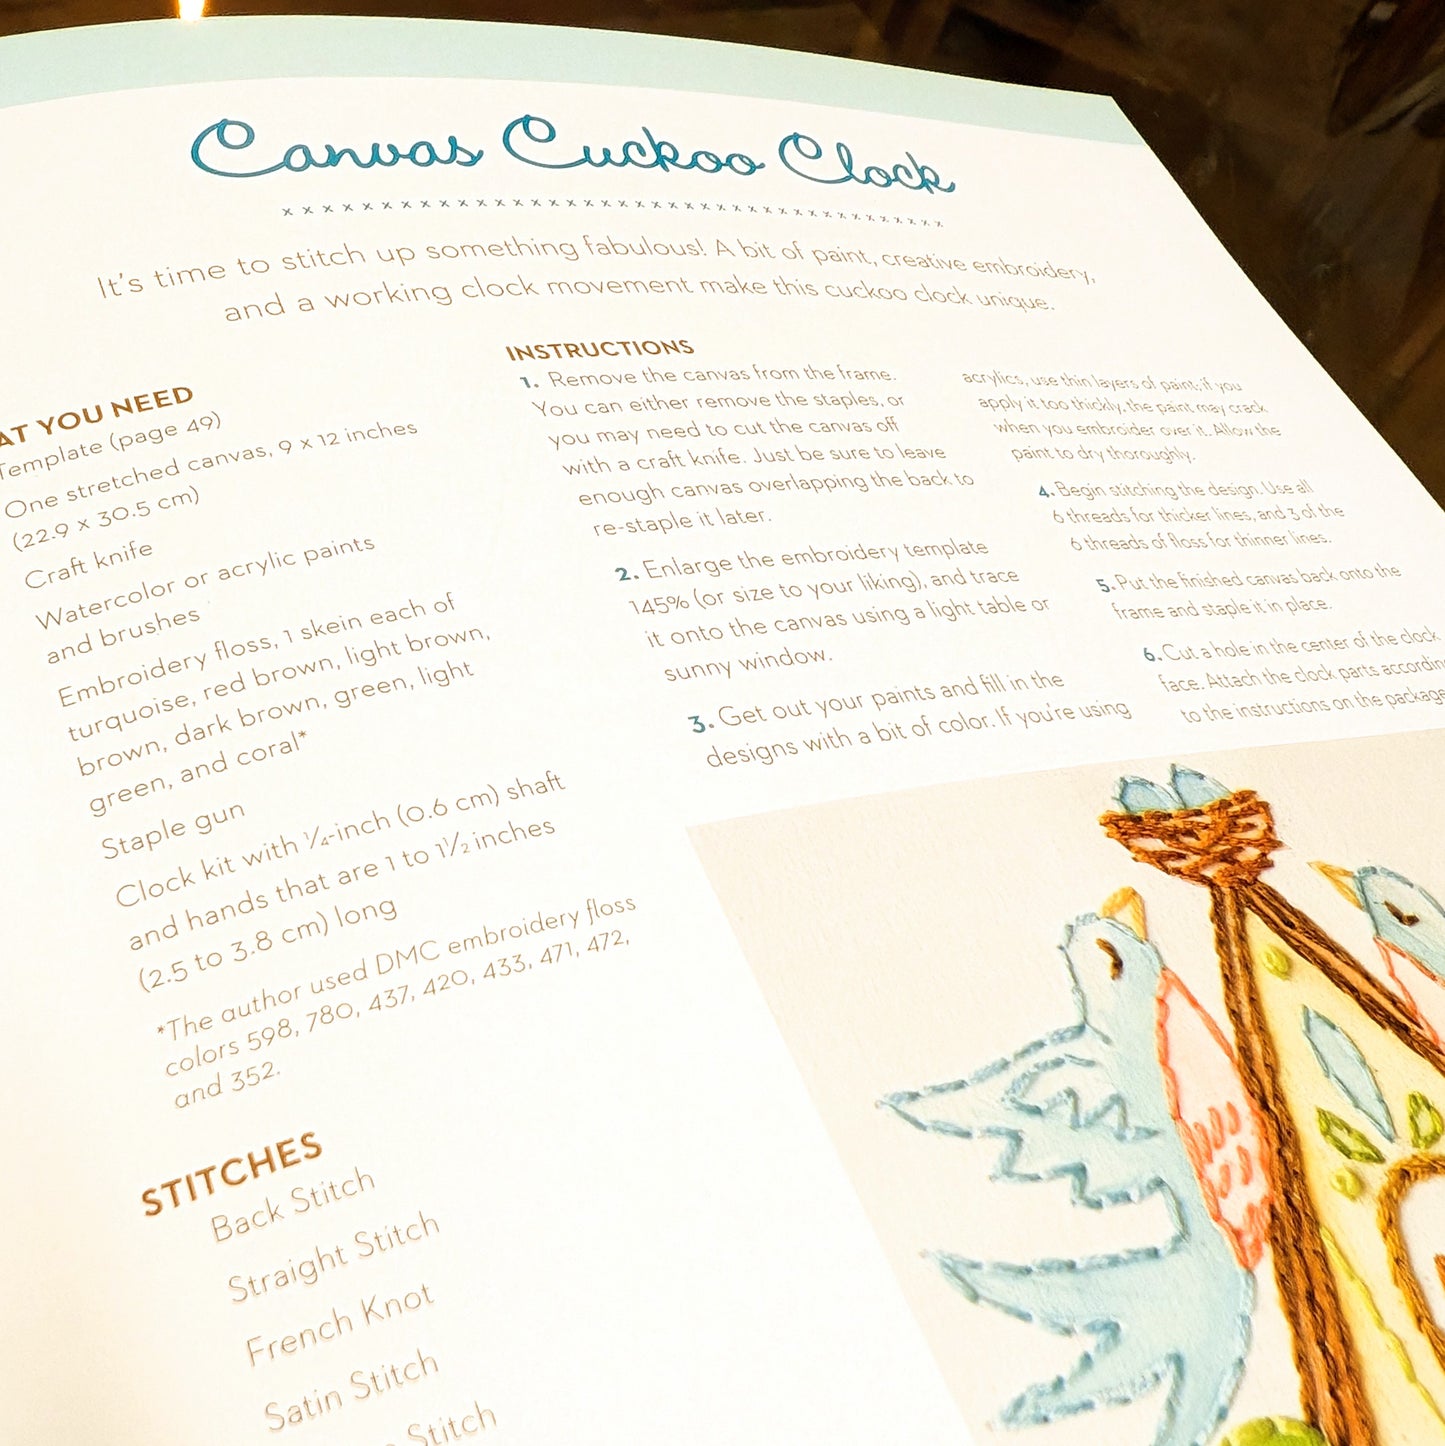 Canvas Cuckoo Clock
It's time to stitch up something fabulous! A bit of paint, creative embroidery,
and a working clock movement make this cuckoo clock unique.
AT YOU NEED
Template (page 49)
One stretched canvas, 9 x 12 inches
(22.9 x 30.5 cm)
Craft knife
Watercolor or acrylic paints
and brushes
Embroidery floss, 1 skein each of
turquoise, red brown, light brown,
brown, dark brown, green, light
green, and coral*
Staple gun
Clock kit with ¼-inch (0.6 cm) shaft
and hands that are 1 to 1½ inches
(2.5 to 3.8 cm) long
*The author used DMC embroidery floss
colors 598, 780, 437, 420, 433, 471, 472,
and 352.
STITCHES
Back Stitch
Straight Stitch
French Knot
Satin Stitch
Stitch
INSTRUCTIONS
1. Remove the canvas from the frame.
You can either remove the staples, or
you may need to cut the canvas off
with a craft knife. Just be sure to leave
enough canvas overlapping the back to
re-staple it later.
2. Enlarge the embroidery template
145% (or size to your liking), and trace
it onto the canvas using a light table or
sunny window.
3. Get out your paints and fill in the
designs with a bit of color. If you're using
acrylics, use thin layers of paint; if you
apply it too thickly, the paint may crack
when you embroider over it. Allow the
paint to dry thoroughly.
4. Begin stitching the design. Use all
6 threads for thicker lines, and 3 of the
6 threads of floss for thinner lines.
5. Put the finished canvas back onto the
frame and staple it in place.
6. Cut a hole in the center of the clock
face. Attach the clock parts accordin
to the instructions on the package